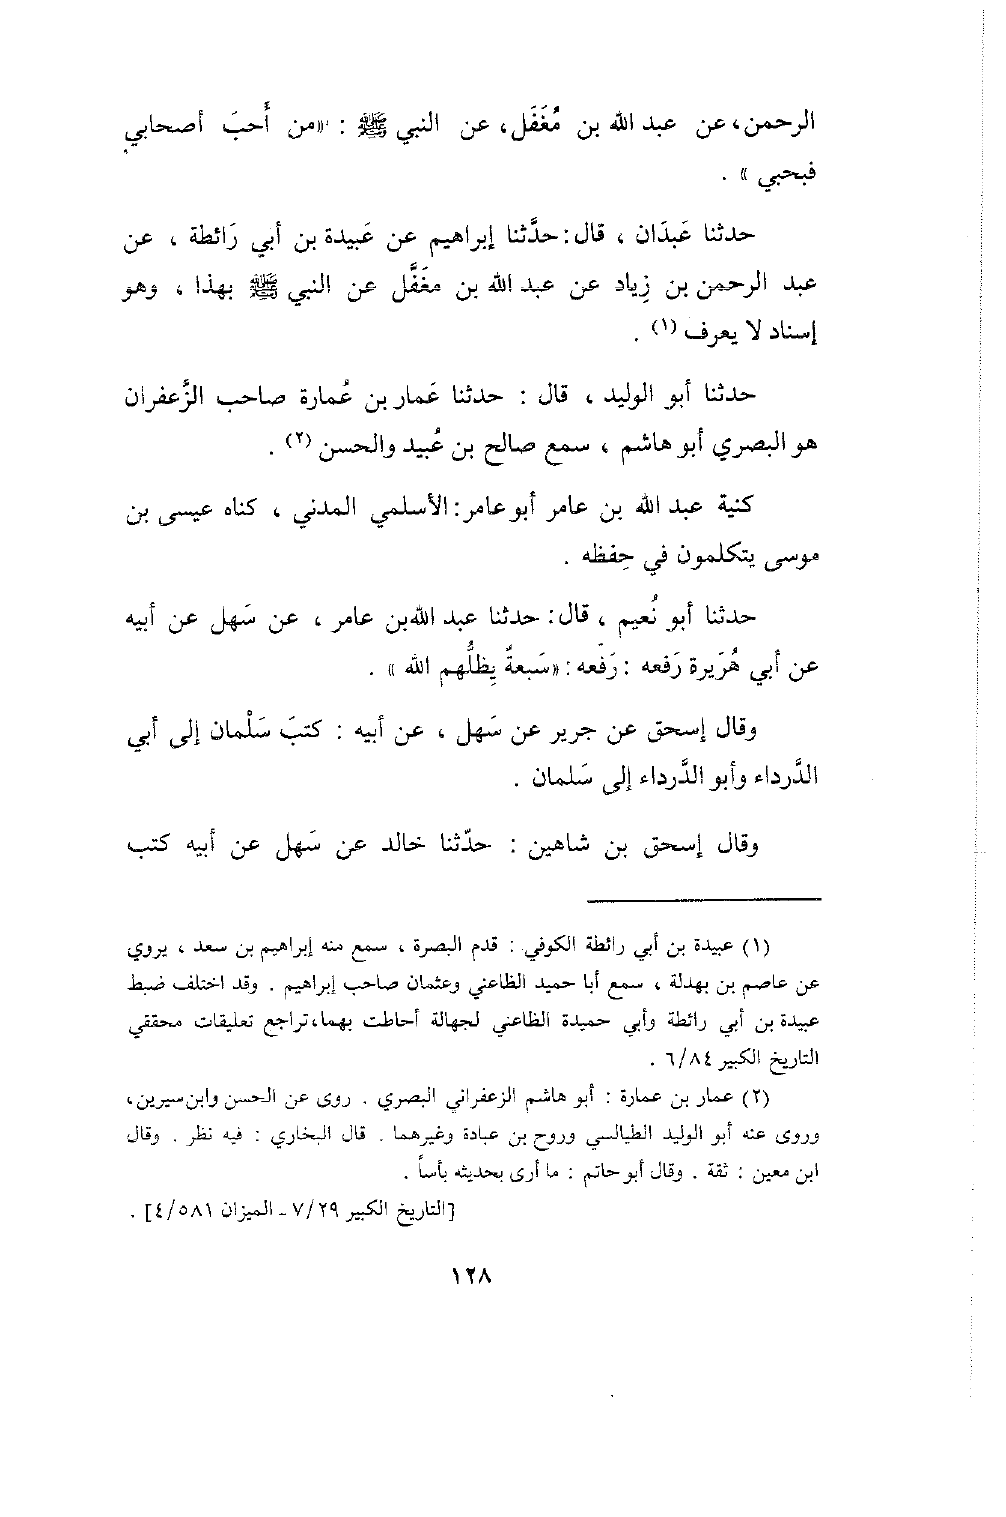 الرحمن، عن عبد الله بن مُغَفَل، عن النبي ﷺ : «من أَحبَ أصحابي
فبحبي » .
حدثنا عَبدَان ، قال: حدَّثنا إبراهيم عن عَبيدة بن أبي رَائطة ، عن
عبد الرحمن بن زِياد عن عبد الله بن مغَفَّل عن النبي ﷺ بهذا ، وهو
إسناد لا يعرف (١) .
حدثنا أبو الوليد ، قال : حدثنا عَمار بن عُمارة صاحب الزَّعفران
هو البصري أبو هاشم ، سمع صالح بن عُبيد والحسن (٢) .
كنية عبد الله بن عامر أبو عامر: الأسلمي المدني ، كناه عيسى بن
موسى يتكلمون في حِفظه .
حدثنا أبو نُعيم ، قال: حدثنا عبد الله بن عامر ، عن سَهل عن أبيه
عن أبي هُرَيرة رَفعه : رَفَعه: «سَبعةٌ يِظلُّهم الله » .
وقال إسحق عن جرير عن سَهل ، عن أبيه : كتبَ سَلْمان إلى أبي
الدَّرداء وأبو الدَّرداء إلى سَلمان .
وقال إسحق بن شاهين : حدّثنا خالد عن سَهل عن أبيه كتب
(١) عبيدة بن أبي رائطة الكوفي : قدم البصرة ، سمع منه إبراهيم بن سعد ، يروي
عن عاصم بن بهدلة ، سمع أبا حميد الظاعني وعثمان صاحب إبراهيم . وقد اختلف ضبط
عبيدة بن أبي رائطة وأبي حميدة الظاعني لجهالة أحاطت بهما، تراجع تعليقات محققي
التاريخ الكبير ٦/٨٤ .
(٢) عمار بن عمارة : أبو هاشم الزعفراني البصري . روى عن الحسن وابن سيرين،
وروى عنه أبو الوليد الطيالسي وروح بن عبادة وغيرهما . قال البخاري : فيه نظر . وقال
ابن معين : ثقة . وقال أبو حاتم : ما أرى بحديثه بأساً .
[التاريخ الكبير ٧/٢٩ ـ الميزان ٤/٥٨١] .
١٢٨